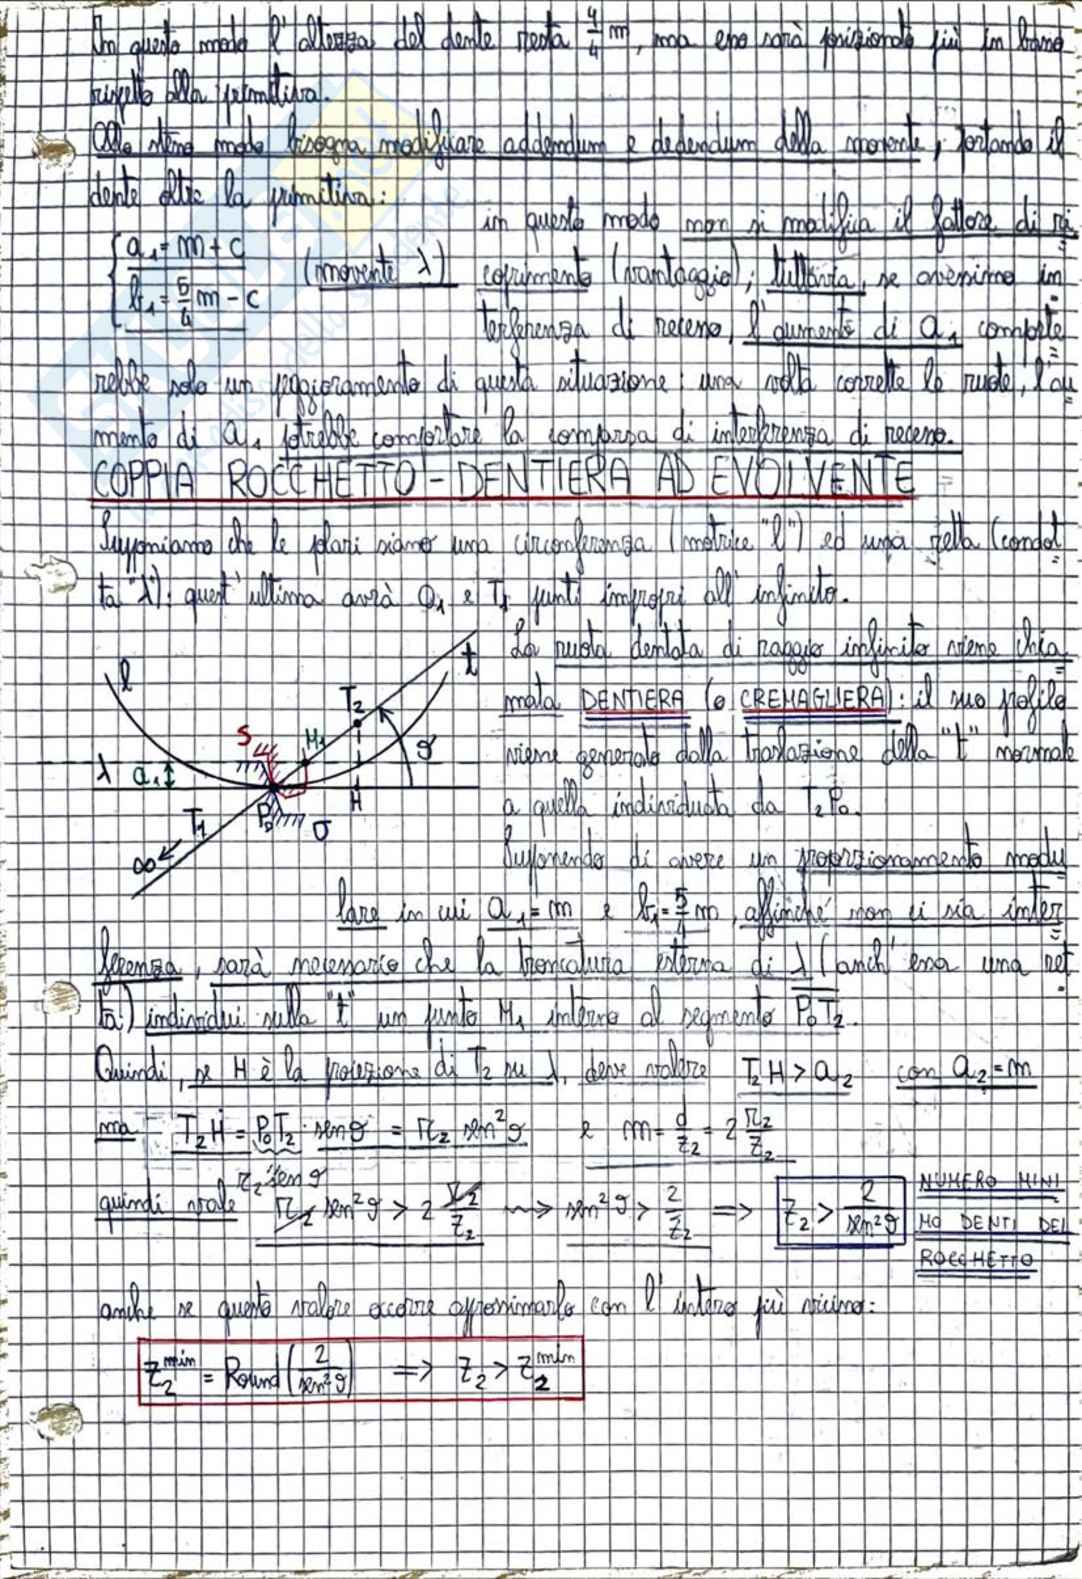 In questo modo l'altezza del dente resta 4/4 m, ma esso sarà posizionato più in basso
rispetto alla primitiva.
Allo stesso modo bisogna modificare addendum e dedendum della movente, portando il
dente oltre la primitiva:
{ a₁ = m + c
b₁ = 5/4 m - c
(movente λ)
in questo modo non si modifica il fattore di ri
coprimento (vantaggio); tuttavia, se avessimo in
terferenza di recesso, l'aumento di a₁ comporte
rebbe solo un peggioramento di questa situazione; una volta corrette le ruote, l'au
mento di a₁ potrebbe comportare la comparsa di interferenza di recesso.
COPPIA ROCCHETTO - DENTIERA AD EVOLVENTE
Supponiamo che le polari siano una circonferenza (motrice "l") ed una retta (condot
ta "λ"): quest'ultima avrà O₁ e T₁ punti impropri all'infinito.
l
t
T₂
S
M₁
λ
a₁
ϑ
H
P₀
σ
T₁
∞
La ruota dentata di raggio infinito viene chia
mata DENTIERA (o CREMAGLIERA): il suo profilo
viene generato dalla traslazione della "t" normale
a quella individuata da T₂P₀.
Supponendo di avere un proporzionamento modu
lare in cui a₁ = m e b₁ = 5/4 m, affinché non ci sia inter
ferenza, sarà necessario che la troncatura esterna di λ (anch'essa una ret
ta) individui sulla "t" un punto M₁ interno al segmento P₀T₂.
Quindi, se H è la proiezione di T₂ su λ, deve valere T₂H > a₂ con a₂ = m
ma T₂H = P₀T₂ · senϑ = r₂ sen²ϑ e m = d/z₂ = 2 r₂/z₂
r₂ senϑ
quindi vale r₂ sen²ϑ > 2 r₂/z₂ ⇝ sen²ϑ > 2/z₂ => z₂ > 2/sen²ϑ
NUMERO MINI
MO DENTI DEL
ROCCHETTO
anche se questo valore occorre approssimarlo con l'intero più vicino:
z₂^min = Round(2/sen²ϑ) => z₂ > z₂^min